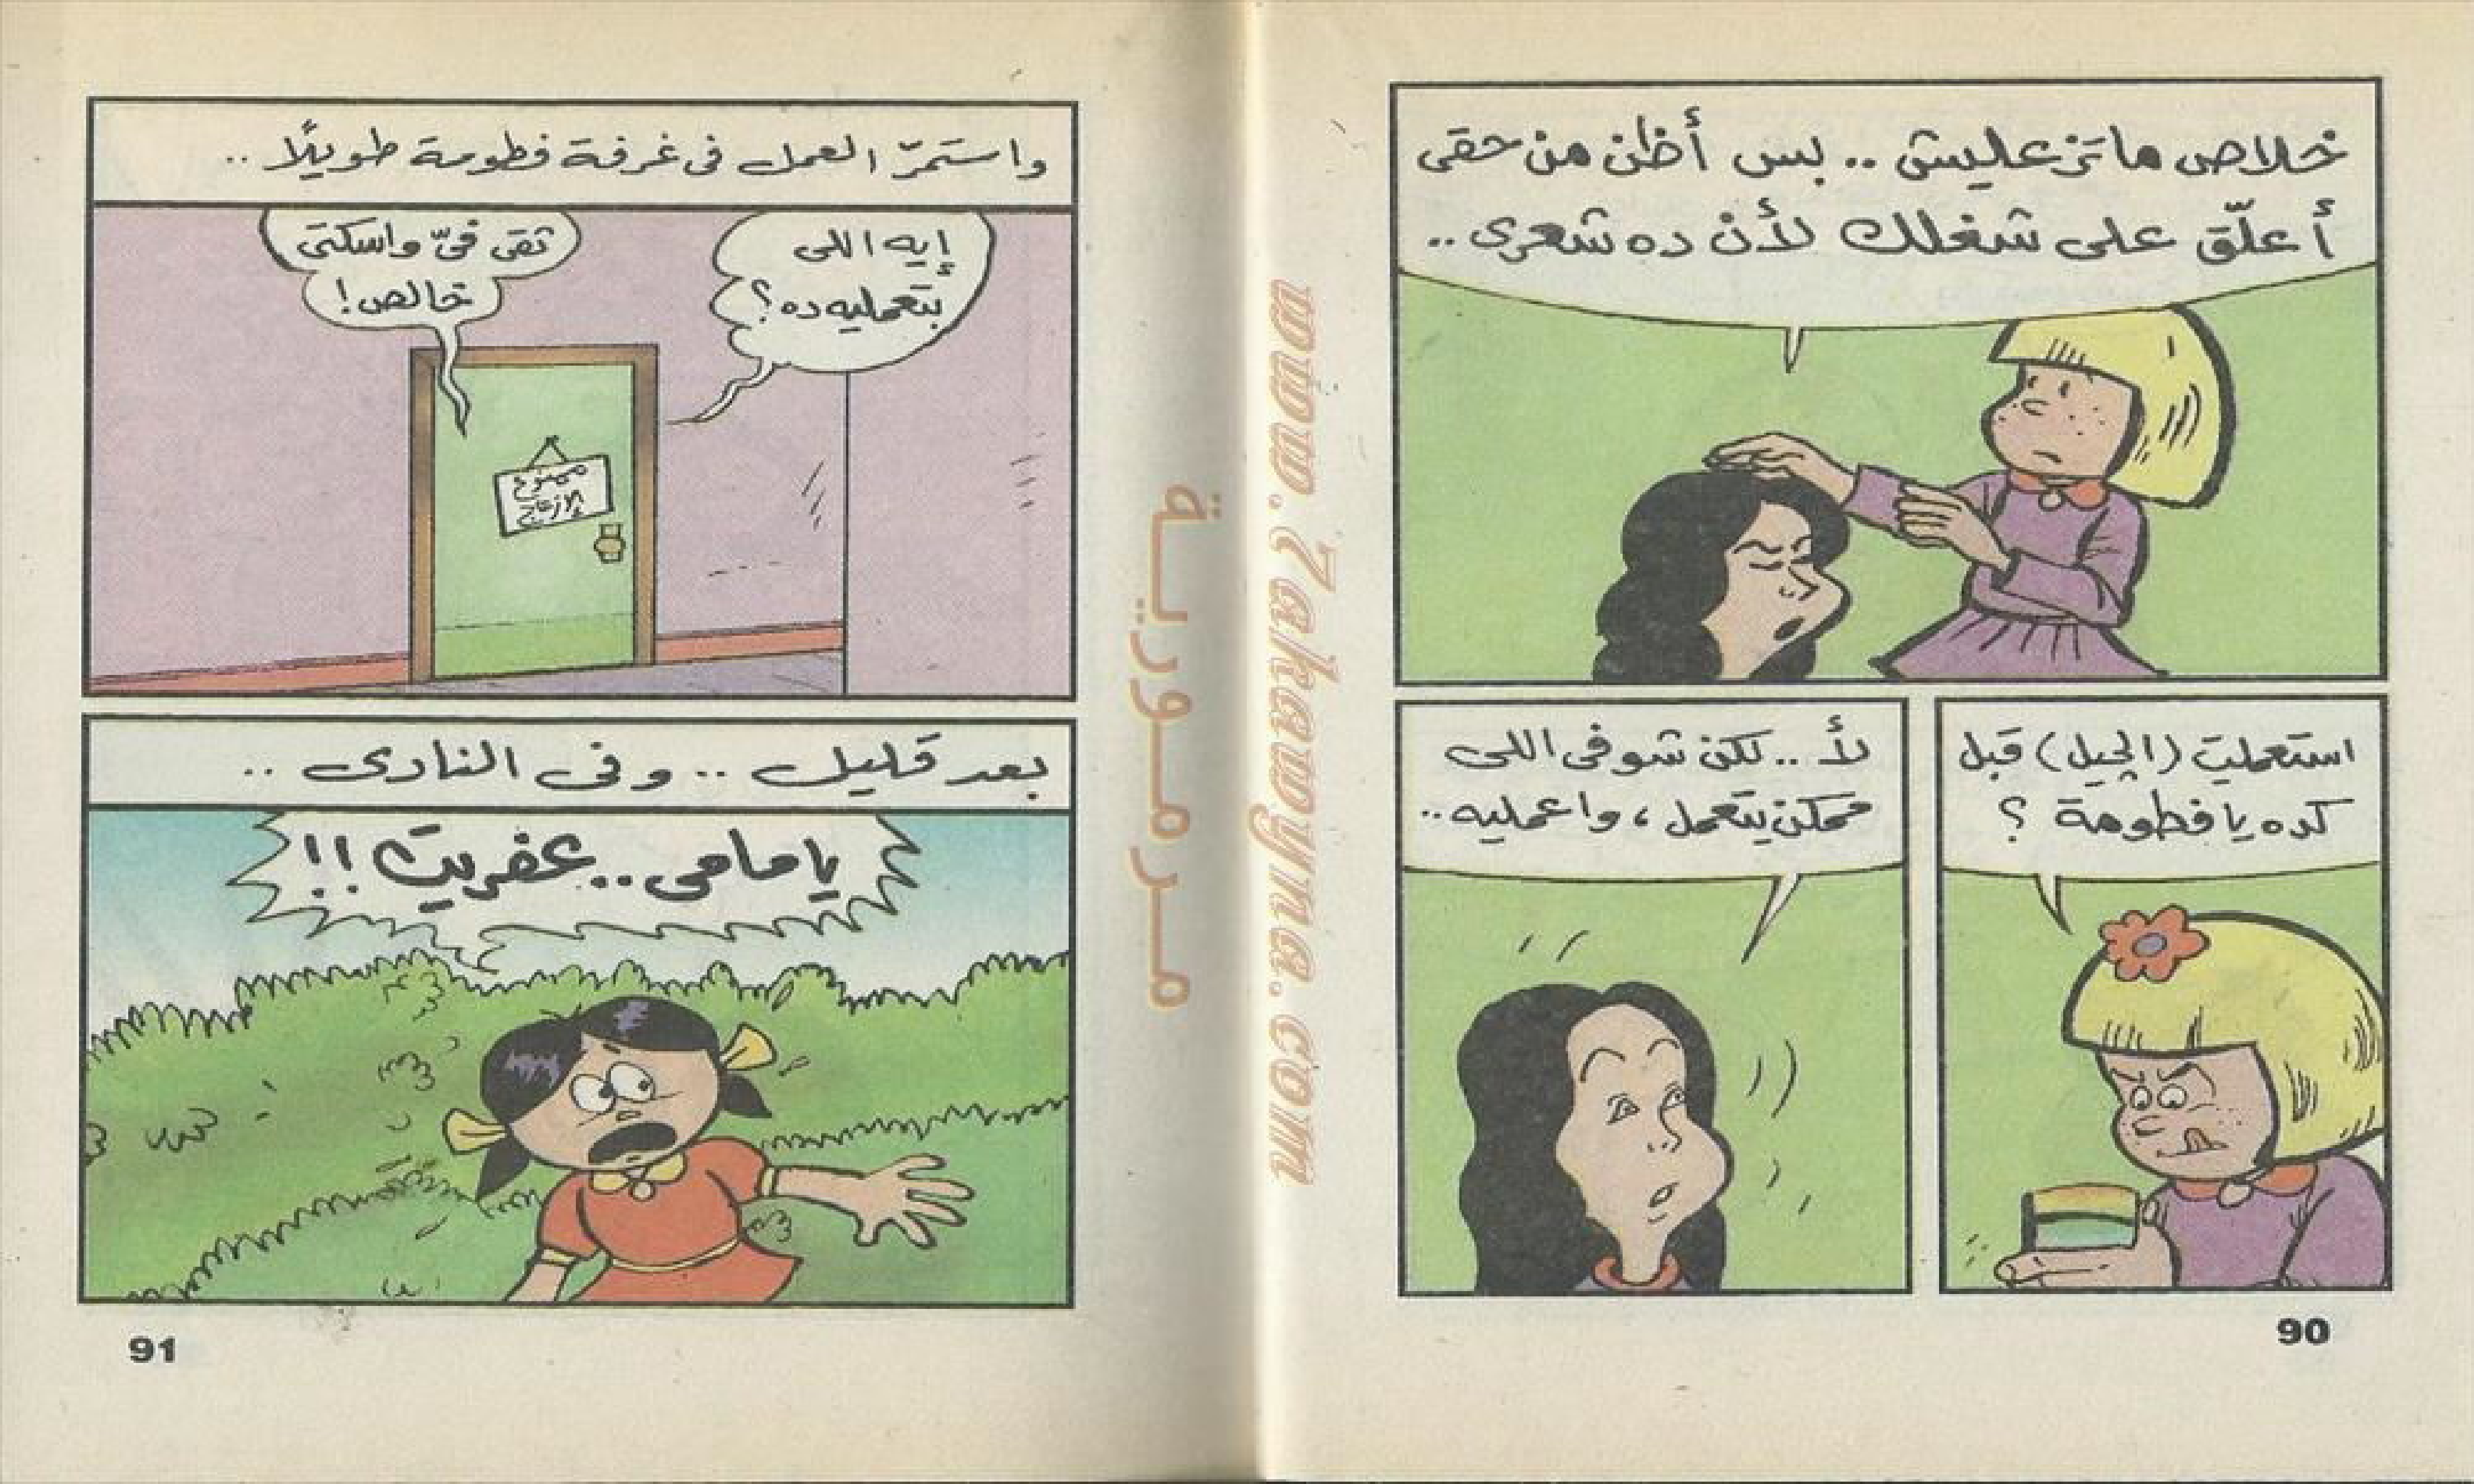 خلاص ماتزعليش .. بس أظن من حقى
أعلّق على شغلك لأن ده شعرى ..
استعملت (الچيل) قبل
كده يا فطومة ؟
لأ .. لكن شوفى اللى
ممكن يتعمل ، واعمليه ..
90
واستمرّ العمل فى غرفة فطومة طويلًا ..
إيه اللى
بتعمليه ده ؟
ثقى فىّ واسكتى
خالص !
ممنوع
الإزعاج
بعد قليل .. وفى النادى ..
يا مامى .. عفريت !!
91
مرمورية
www.7akawyna.com